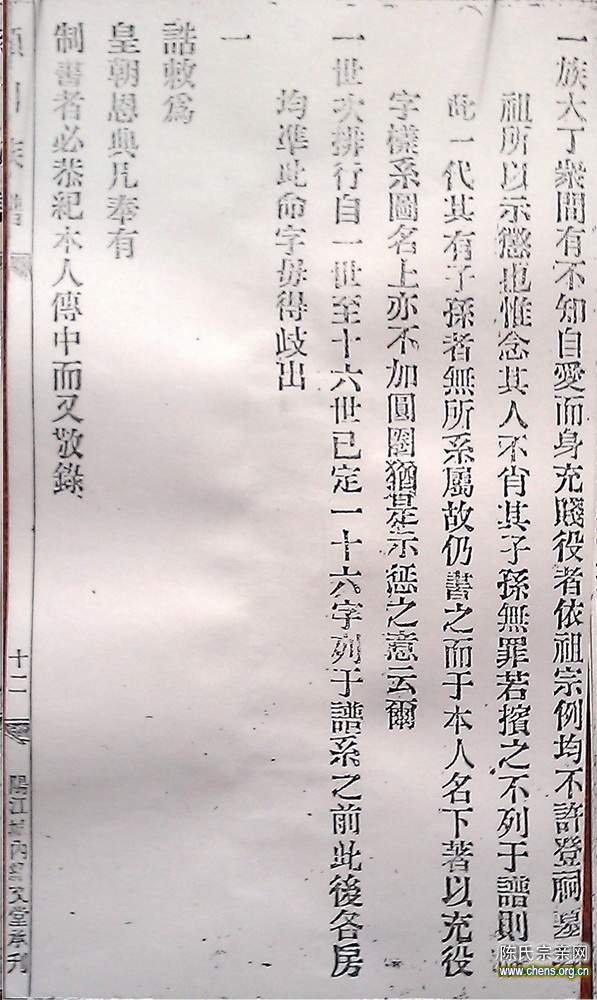 一族大丁衆間有不知自愛而身充賤役者依祖宗例均不許登祠墓
祖所以示懲也惟念其人不肖其子孫無罪若擯之不列于譜則
此一代其有子孫者無所系屬故仍書之而于本人名下著以充役
字樣系圖名上亦不加圓圈猶是示懲之意云爾
一世次排行自一世至十六世已定一十六字列于譜系之前此後各房
均準此命字毋得歧出
一
誥敕爲
皇朝恩典凡奉有
制書者必恭紀本人傳中而又敬錄
族譜
十二
陽江城內
文堂承刊
陈氏宗亲网
www.chens.org.cn